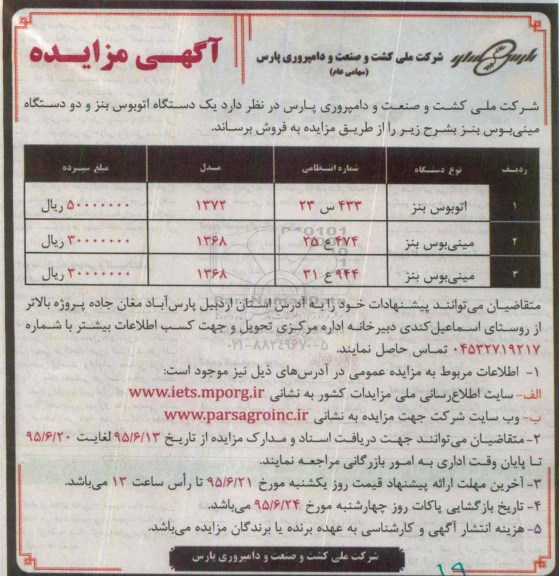 آگهی مزایده
شرکت ملی کشت و صنعت و دامپروری پارس
(سهامی عام)
شرکت ملی کشت و صنعت و دامپروری پارس در نظر دارد یک دستگاه اتوبوس بنز و دو دستگاه
مینی‌بوس بنز بشرح زیر را از طریق مزایده به فروش برساند.
ردیف نوع دستگاه شماره انتظامی مدل مبلغ سپرده
۱ اتوبوس بنز ۴۳۳ س ۲۳ ۱۳۷۲ ۵۰۰۰۰۰۰۰ ریال
۲ مینی‌بوس بنز ۴۷۴ ع ۲۵ ۱۳۶۸ ۳۰۰۰۰۰۰۰ ریال
۳ مینی‌بوس بنز ۹۴۴ ع ۳۱ ۱۳۶۸ ۳۰۰۰۰۰۰۰ ریال
متقاضیان می‌توانند پیشنهادات خود را به آدرس استان اردبیل پارس‌آباد مغان جاده پروژه بالاتر
از روستای اسماعیل‌کندی دبیرخانه اداره مرکزی تحویل و جهت کسب اطلاعات بیشتر با شماره
۰۴۵۳۲۷۱۹۲۱۷ تماس حاصل نمایند.
۰۲۱-۸۸۳۴۹۶۷۰-۵
۱- اطلاعات مربوط به مزایده عمومی در آدرس‌های ذیل نیز موجود است:
الف- سایت اطلاع‌رسانی ملی مزایدات کشور به نشانی www.iets.mporg.ir
ب- وب سایت شرکت جهت مزایده به نشانی www.parsagroinc.ir
۲- متقاضیان می‌توانند جهت دریافت اسناد و مدارک مزایده از تاریخ ۹۵/۶/۱۳ لغایت ۹۵/۶/۲۰
تا پایان وقت اداری به امور بازرگانی مراجعه نمایند.
۳- آخرین مهلت ارائه پیشنهاد قیمت روز یکشنبه مورخ ۹۵/۶/۲۱ تا رأس ساعت ۱۳ می‌باشد.
۴- تاریخ بازگشایی پاکات روز چهارشنبه مورخ ۹۵/۶/۲۴ می‌باشد.
۵- هزینه انتشار آگهی و کارشناسی به عهده برنده یا برندگان مزایده می‌باشد.
شرکت ملی کشت و صنعت و دامپروری پارس
۱۹